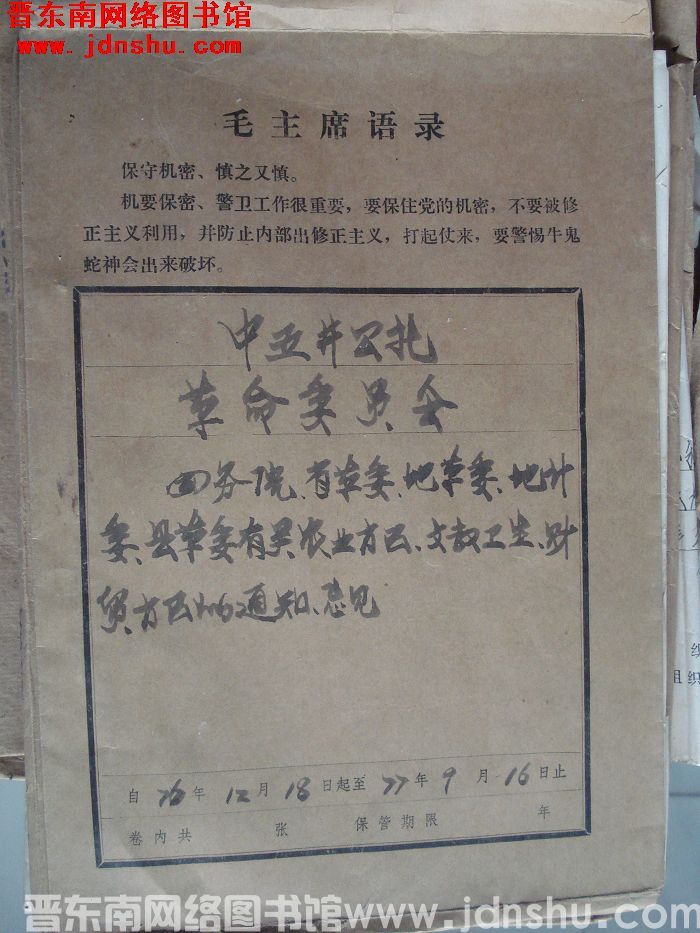 晋东南网络图书馆
www.jdnshu.com
毛主席语录
保守机密、慎之又慎。
机要保密、警卫工作很重要，要保住党的机密，不要被修
正主义利用，并防止内部出修正主义，打起仗来，要警惕牛鬼
蛇神会出来破坏。
中五井公社
革命委员会
国务院、省革委、地革委、地计
委、县革委有关农业方面、文教卫生、财
贸方面的通知、意见
自76年12月18日起至77年9月16日止
卷内共 张 保管期限 年
组织
晋东南网络图书馆www.jdnshu.com